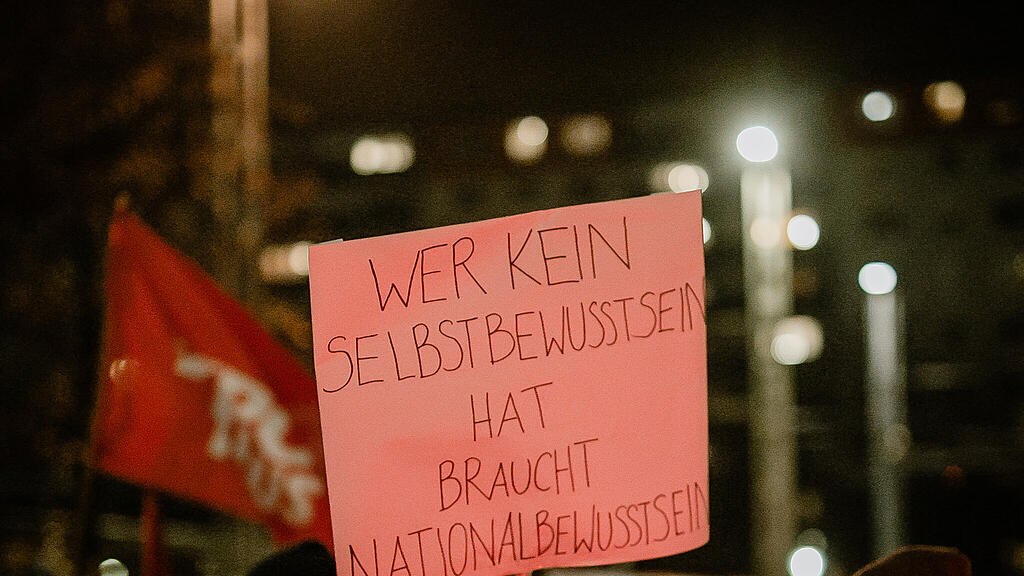 WER KEIN
SELBSTBEWUSSTSEIN
HAT
BRAUCHT
NATIONALBEWUSSTSEIN